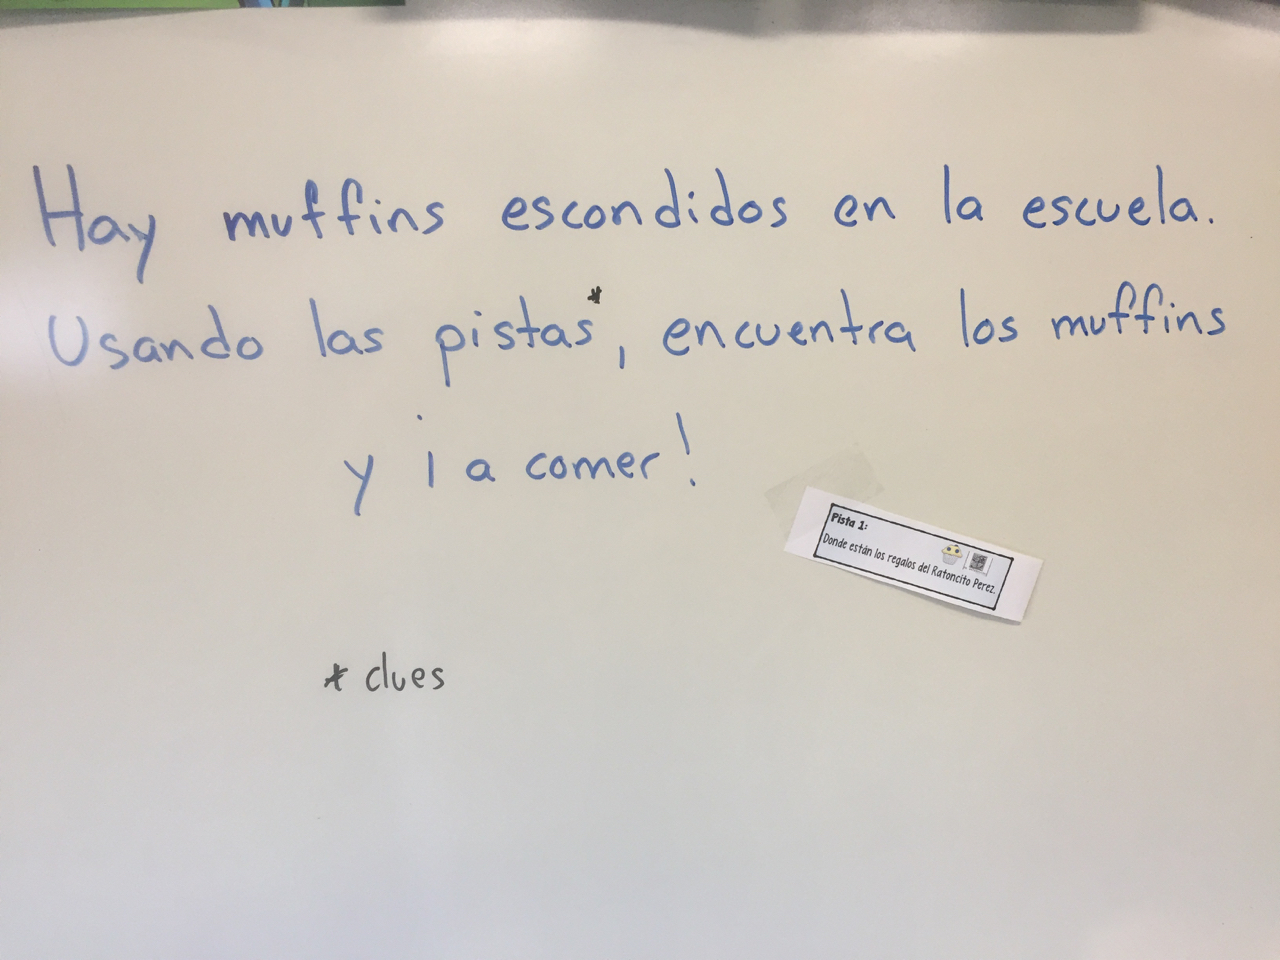 Hay muffins escondidos en la escuela.
Usando las pistas*, encuentra los muffins
y ¡a comer!
Pista 1:
Donde están los regalos del Ratoncito Perez.
* clues